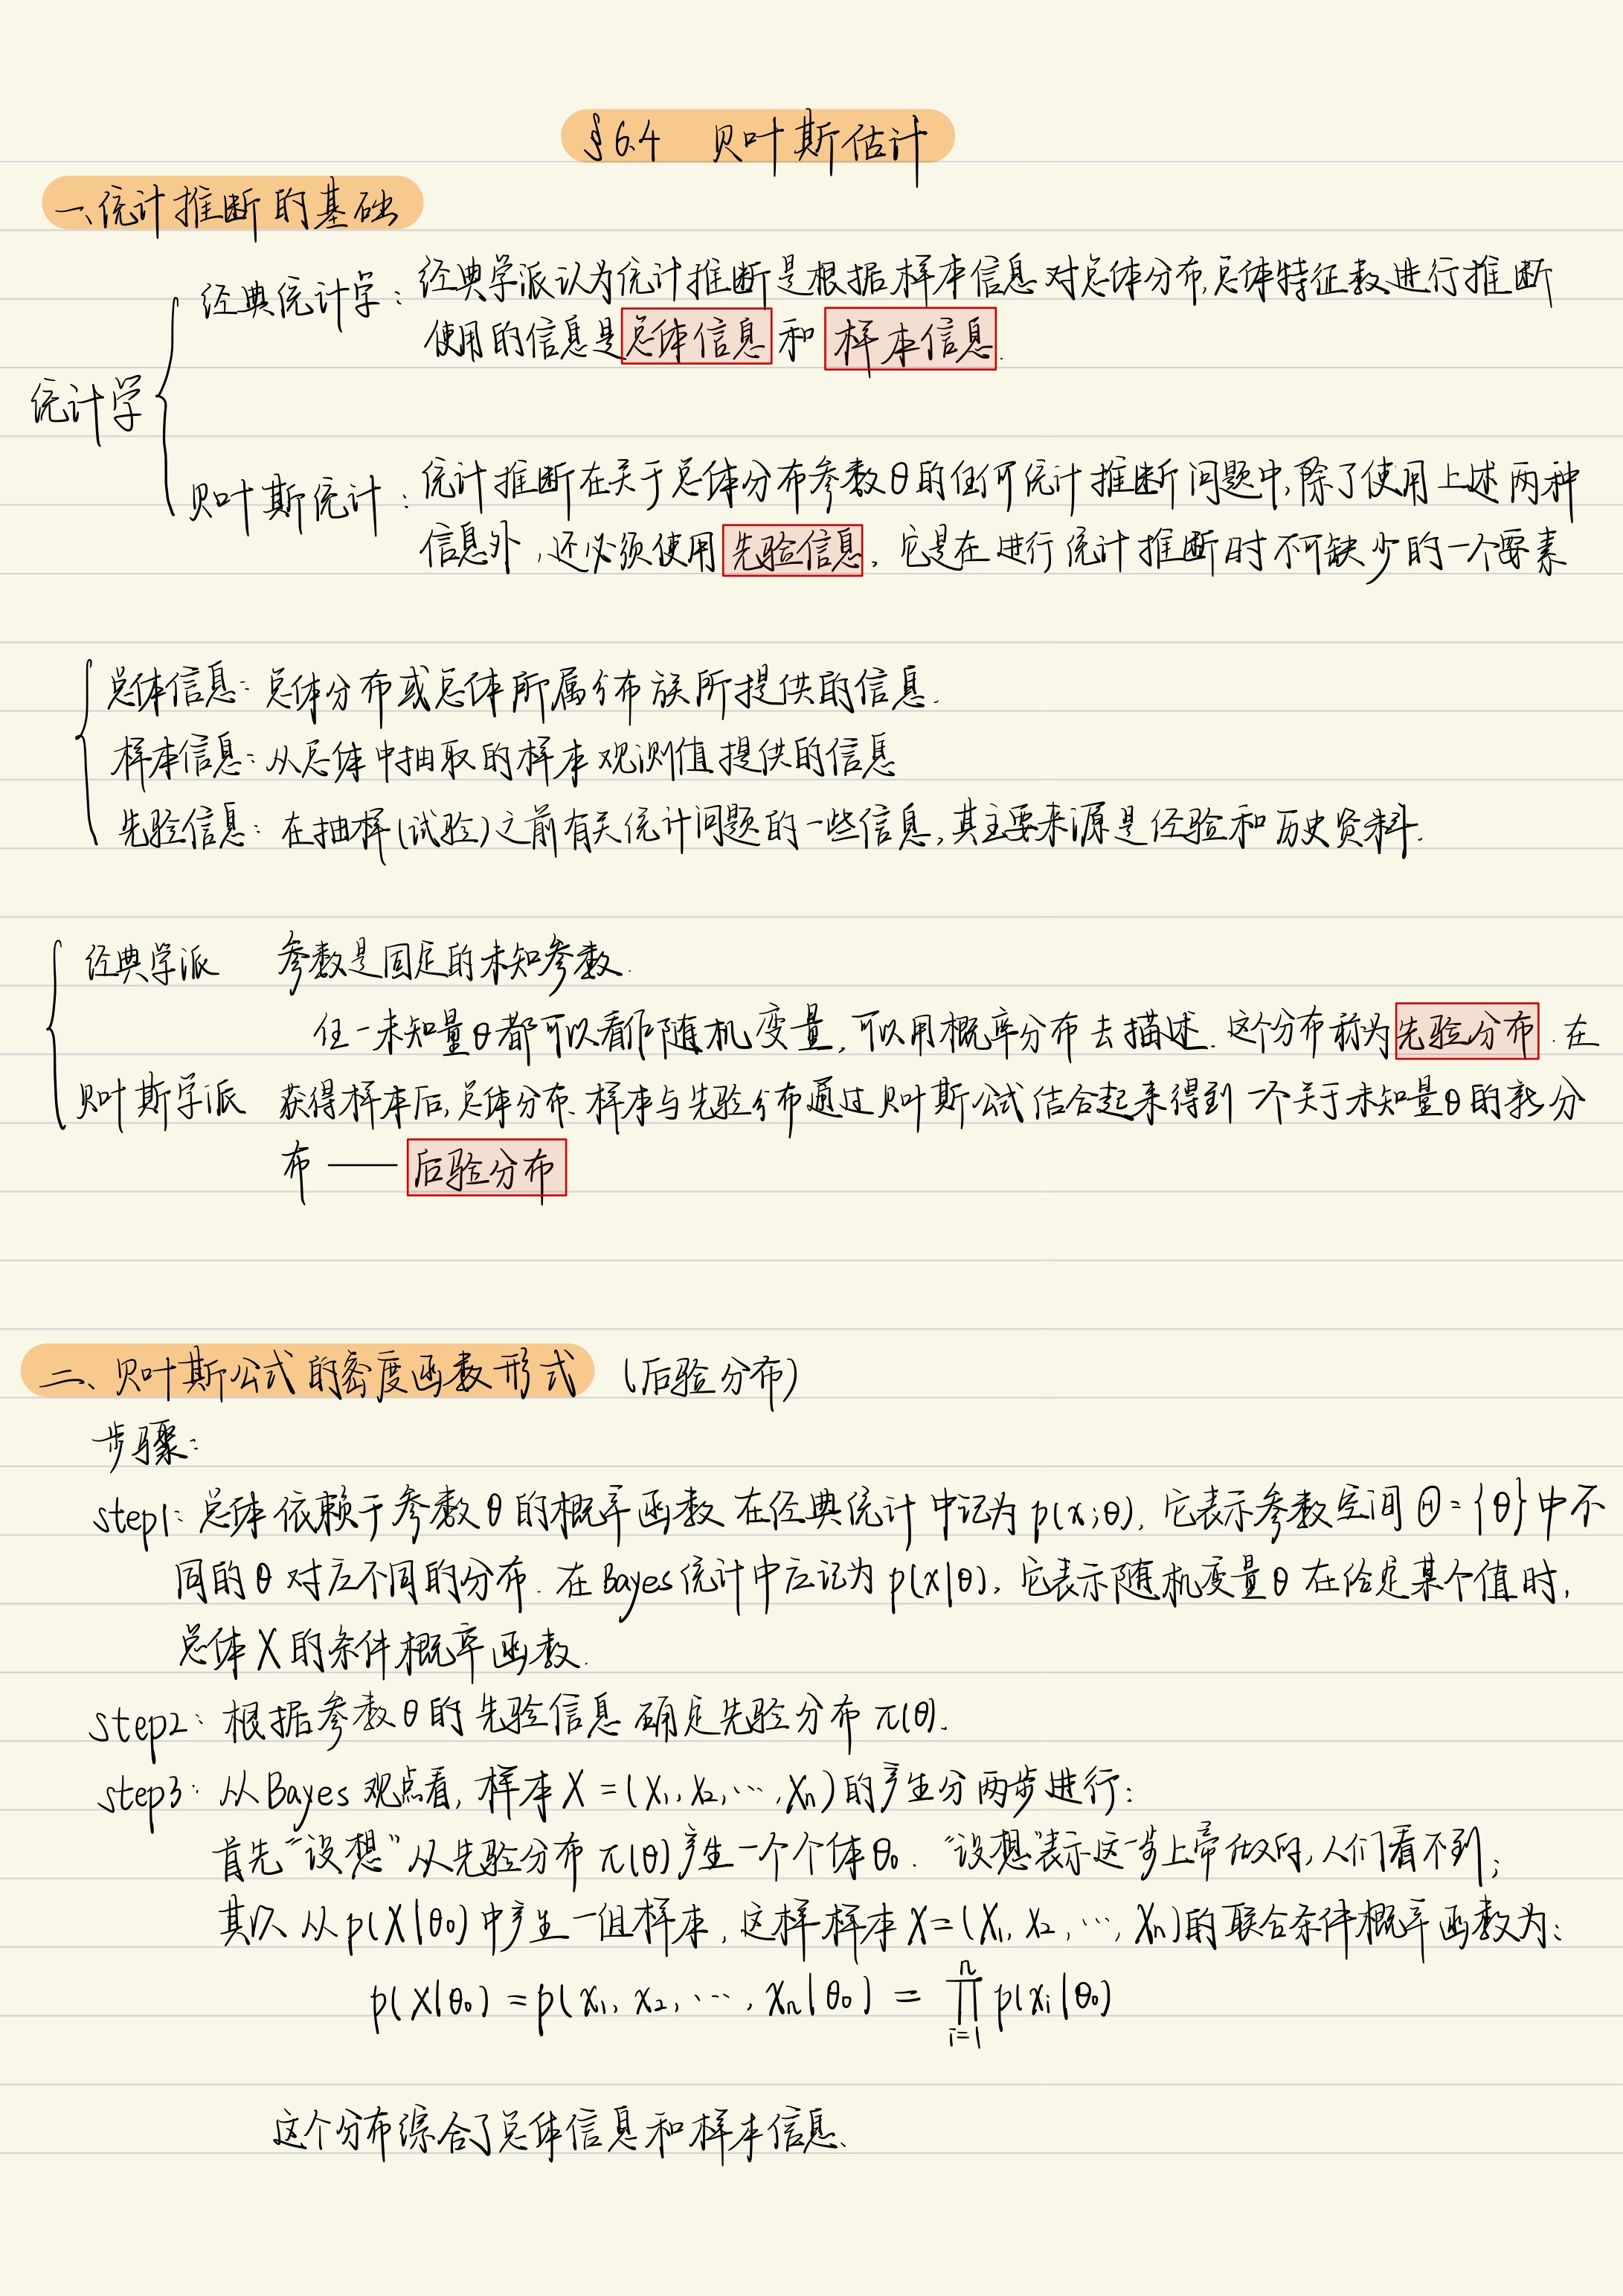 §6.4 贝叶斯估计
一、统计推断的基础
经典统计学：经典学派认为统计推断是根据样本信息对总体分布,总体特征数进行推断
使用的信息是总体信息和样本信息.
统计学
贝叶斯统计：统计推断在关于总体分布参数θ的任何统计推断问题中,除了使用上述两种
信息外,还必须使用先验信息，它是在进行统计推断时不可缺少的一个要素
总体信息：总体分布或总体所属分布族所提供的信息.
样本信息：从总体中抽取的样本观测值提供的信息
先验信息：在抽样(试验)之前有关统计问题的一些信息,其主要来源是经验和历史资料.
经典学派 参数是固定的未知参数.
任一未知量θ都可以看作随机变量,可以用概率分布去描述.这个分布称为先验分布.在
贝叶斯学派 获得样本后,总体分布、样本与先验分布通过贝叶斯公式结合起来得到一个关于未知量θ的新分
布——后验分布
二、贝叶斯公式的密度函数形式 (后验分布)
步骤：
step1：总体依赖于参数θ的概率函数在经典统计中记为p(x;θ),它表示参数空间Θ={θ}中不
同的θ对应不同的分布.在Bayes统计中应记为p(x|θ),它表示随机变量θ在给定某个值时,
总体X的条件概率函数.
step2：根据参数θ的先验信息确定先验分布π(θ).
step3：从Bayes观点看,样本X=(x₁,x₂,⋯,xₙ)的产生分两步进行：
首先“设想”从先验分布π(θ)产生一个个体θ₀.“设想”表示这一步上帝做的,人们看不到;
其次从p(X|θ₀)中产生一组样本,这样样本X=(x₁,x₂,⋯,xₙ)的联合条件概率函数为：
p(X|θ₀)=p(x₁,x₂,⋯,xₙ|θ₀)=∏ⁿᵢ₌₁p(xᵢ|θ₀)
这个分布综合了总体信息和样本信息.